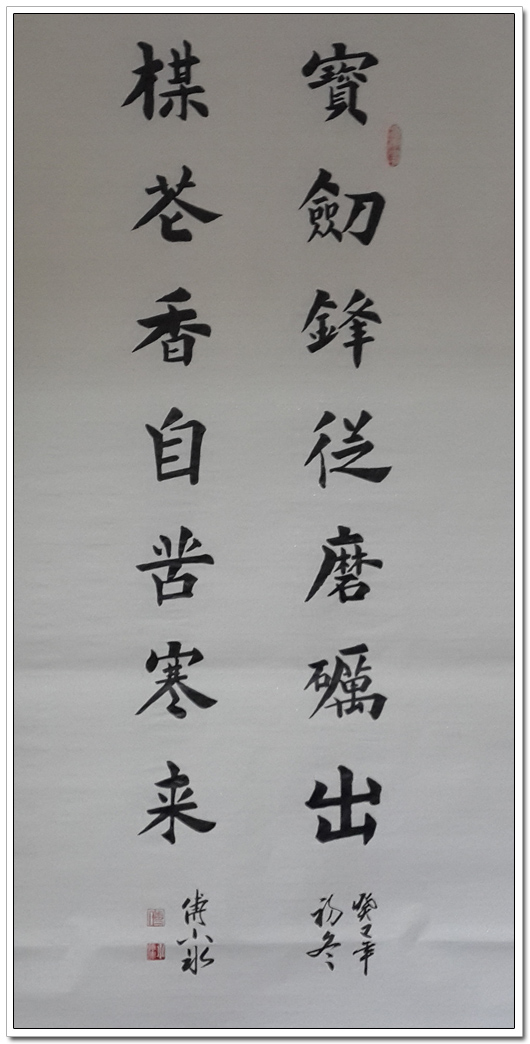 寶劒鋒從磨礪出
楳苍香自苦寒来
癸巳年
初冬
傅小冰